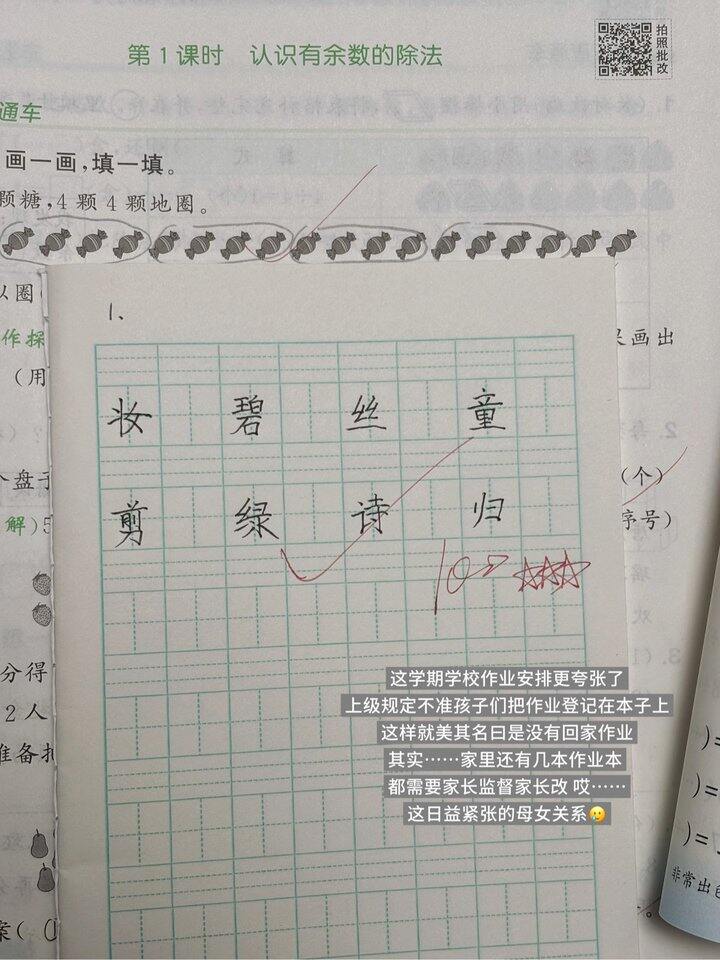 第1课时 认识有余数的除法
拍照批改
通车
画一画，填一填。
颗糖，4颗4颗地圈。
以圈
1、
作探
画出
（用
妆 碧 丝 童
2.
个盘子
（个）
剪 绿 诗 归
解）5
序号）
100
3.
分得
这学期学校作业安排更夸张了
2人
上级规定不准孩子们把作业登记在本子上
这样就美其名曰是没有回家作业
准备扎
其实……家里还有几本作业本
都需要家长监督家长改 哎……
这日益紧张的母女关系🥲
)=
)=
)=
非常出色
案(